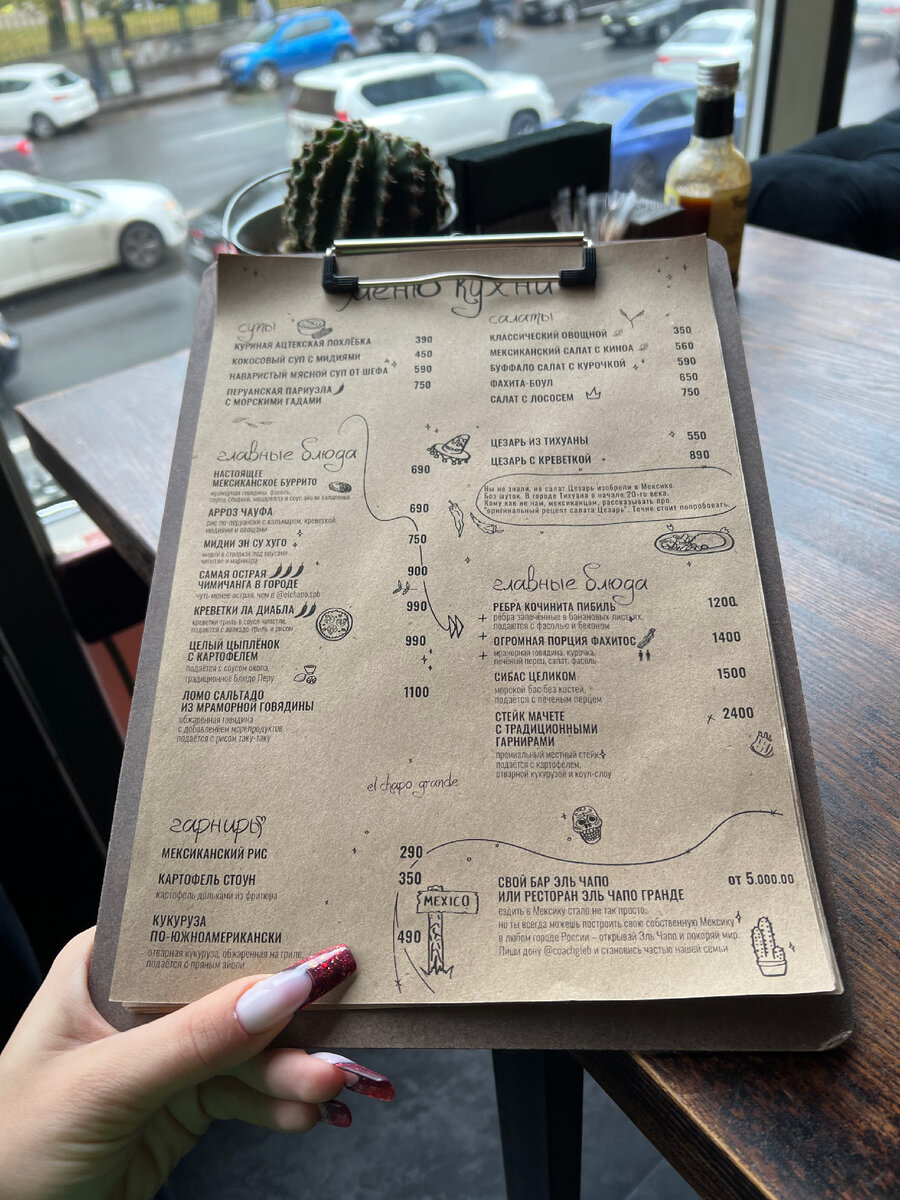 меню кухни
супы
КУРИНАЯ АЦТЕКСКАЯ ПОХЛЁБКА 390
КОКОСОВЫЙ СУП С МИДИЯМИ 450
НАВАРИСТЫЙ МЯСНОЙ СУП ОТ ШЕФА 590
ПЕРУАНСКАЯ ПАРИУЭЛА 750
С МОРСКИМИ ГАДАМИ
салаты
КЛАССИЧЕСКИЙ ОВОЩНОЙ 350
МЕКСИКАНСКИЙ САЛАТ С КИНОА 560
БУФФАЛО САЛАТ С КУРОЧКОЙ 590
ФАХИТА-БОУЛ 650
САЛАТ С ЛОСОСЕМ 750
ЦЕЗАРЬ ИЗ ТИХУАНЫ 550
ЦЕЗАРЬ С КРЕВЕТКОЙ 890
Вы не знали, но салат Цезарь изобрели в Мексике.
Без шуток. В городе Тихуана в начале 20-го века.
Кому как не нам, мексиканцам, рассказывать про
"оригинальный рецепт салата Цезарь". Точно стоит попробовать.
главные блюда
НАСТОЯЩЕЕ 690
МЕКСИКАНСКОЕ БУРРИТО
мраморная говядина, фасоль,
перец сладкий, моцарелла и соус айоли халапеньо
АРРОЗ ЧАУФА 690
рис по-перуански с кальмаром, креветкой,
мидиями и овощами
МИДИИ ЭН СУ ХУГО 750
мидии в створках под соусами
чипотле и маринара
САМАЯ ОСТРАЯ 900
ЧИМИЧАНГА В ГОРОДЕ
чуть менее острая, чем в @elchapo.spb
КРЕВЕТКИ ЛА ДИАБЛА 990
креветки-гриль в соусе чипотле,
подаются с авокадо-гриль и рисом
ЦЕЛЫЙ ЦЫПЛЁНОК 990
С КАРТОФЕЛЕМ
подаётся с соусом окопа,
традиционное блюдо Перу
ЛОМО САЛЬТАДО 1100
ИЗ МРАМОРНОЙ ГОВЯДИНЫ
обжаренная говядина
с добавлением морепродуктов,
подаётся с рисом таку-таку
главные блюда
РЕБРА КОЧИНИТА ПИБИЛЬ 1200
ребра запечённые в банановых листьях,
подаются с фасолью и беконом
ОГРОМНАЯ ПОРЦИЯ ФАХИТОС 1400
мраморная говядина, курочка,
печёный перец, салат, фасоль
СИБАС ЦЕЛИКОМ 1500
морской бас без костей,
подаётся с печёным перцем
СТЕЙК МАЧЕТЕ 2400
С ТРАДИЦИОННЫМИ
ГАРНИРАМИ
премиальный местный стейк
подаётся с картофелем,
отварной кукурузой и коул-слоу
el chapo grande
гарниры
МЕКСИКАНСКИЙ РИС 290
КАРТОФЕЛЬ СТОУН 350
картофель дольками из фритюра
КУКУРУЗА 490
ПО-ЮЖНОАМЕРИКАНСКИ
отварная кукуруза, обжаренная на гриле,
подаётся с пряным айоли
MEXICO
СВОЙ БАР ЭЛЬ ЧАПО от 5.000.00
ИЛИ РЕСТОРАН ЭЛЬ ЧАПО ГРАНДЕ
ездить в Мексику стало не так просто,
но ты всегда можешь построить свою собственную Мексику
в любом городе России – открывай Эль Чапо и покоряй мир.
Пиши дону @coachgleb и становись частью нашей семьи